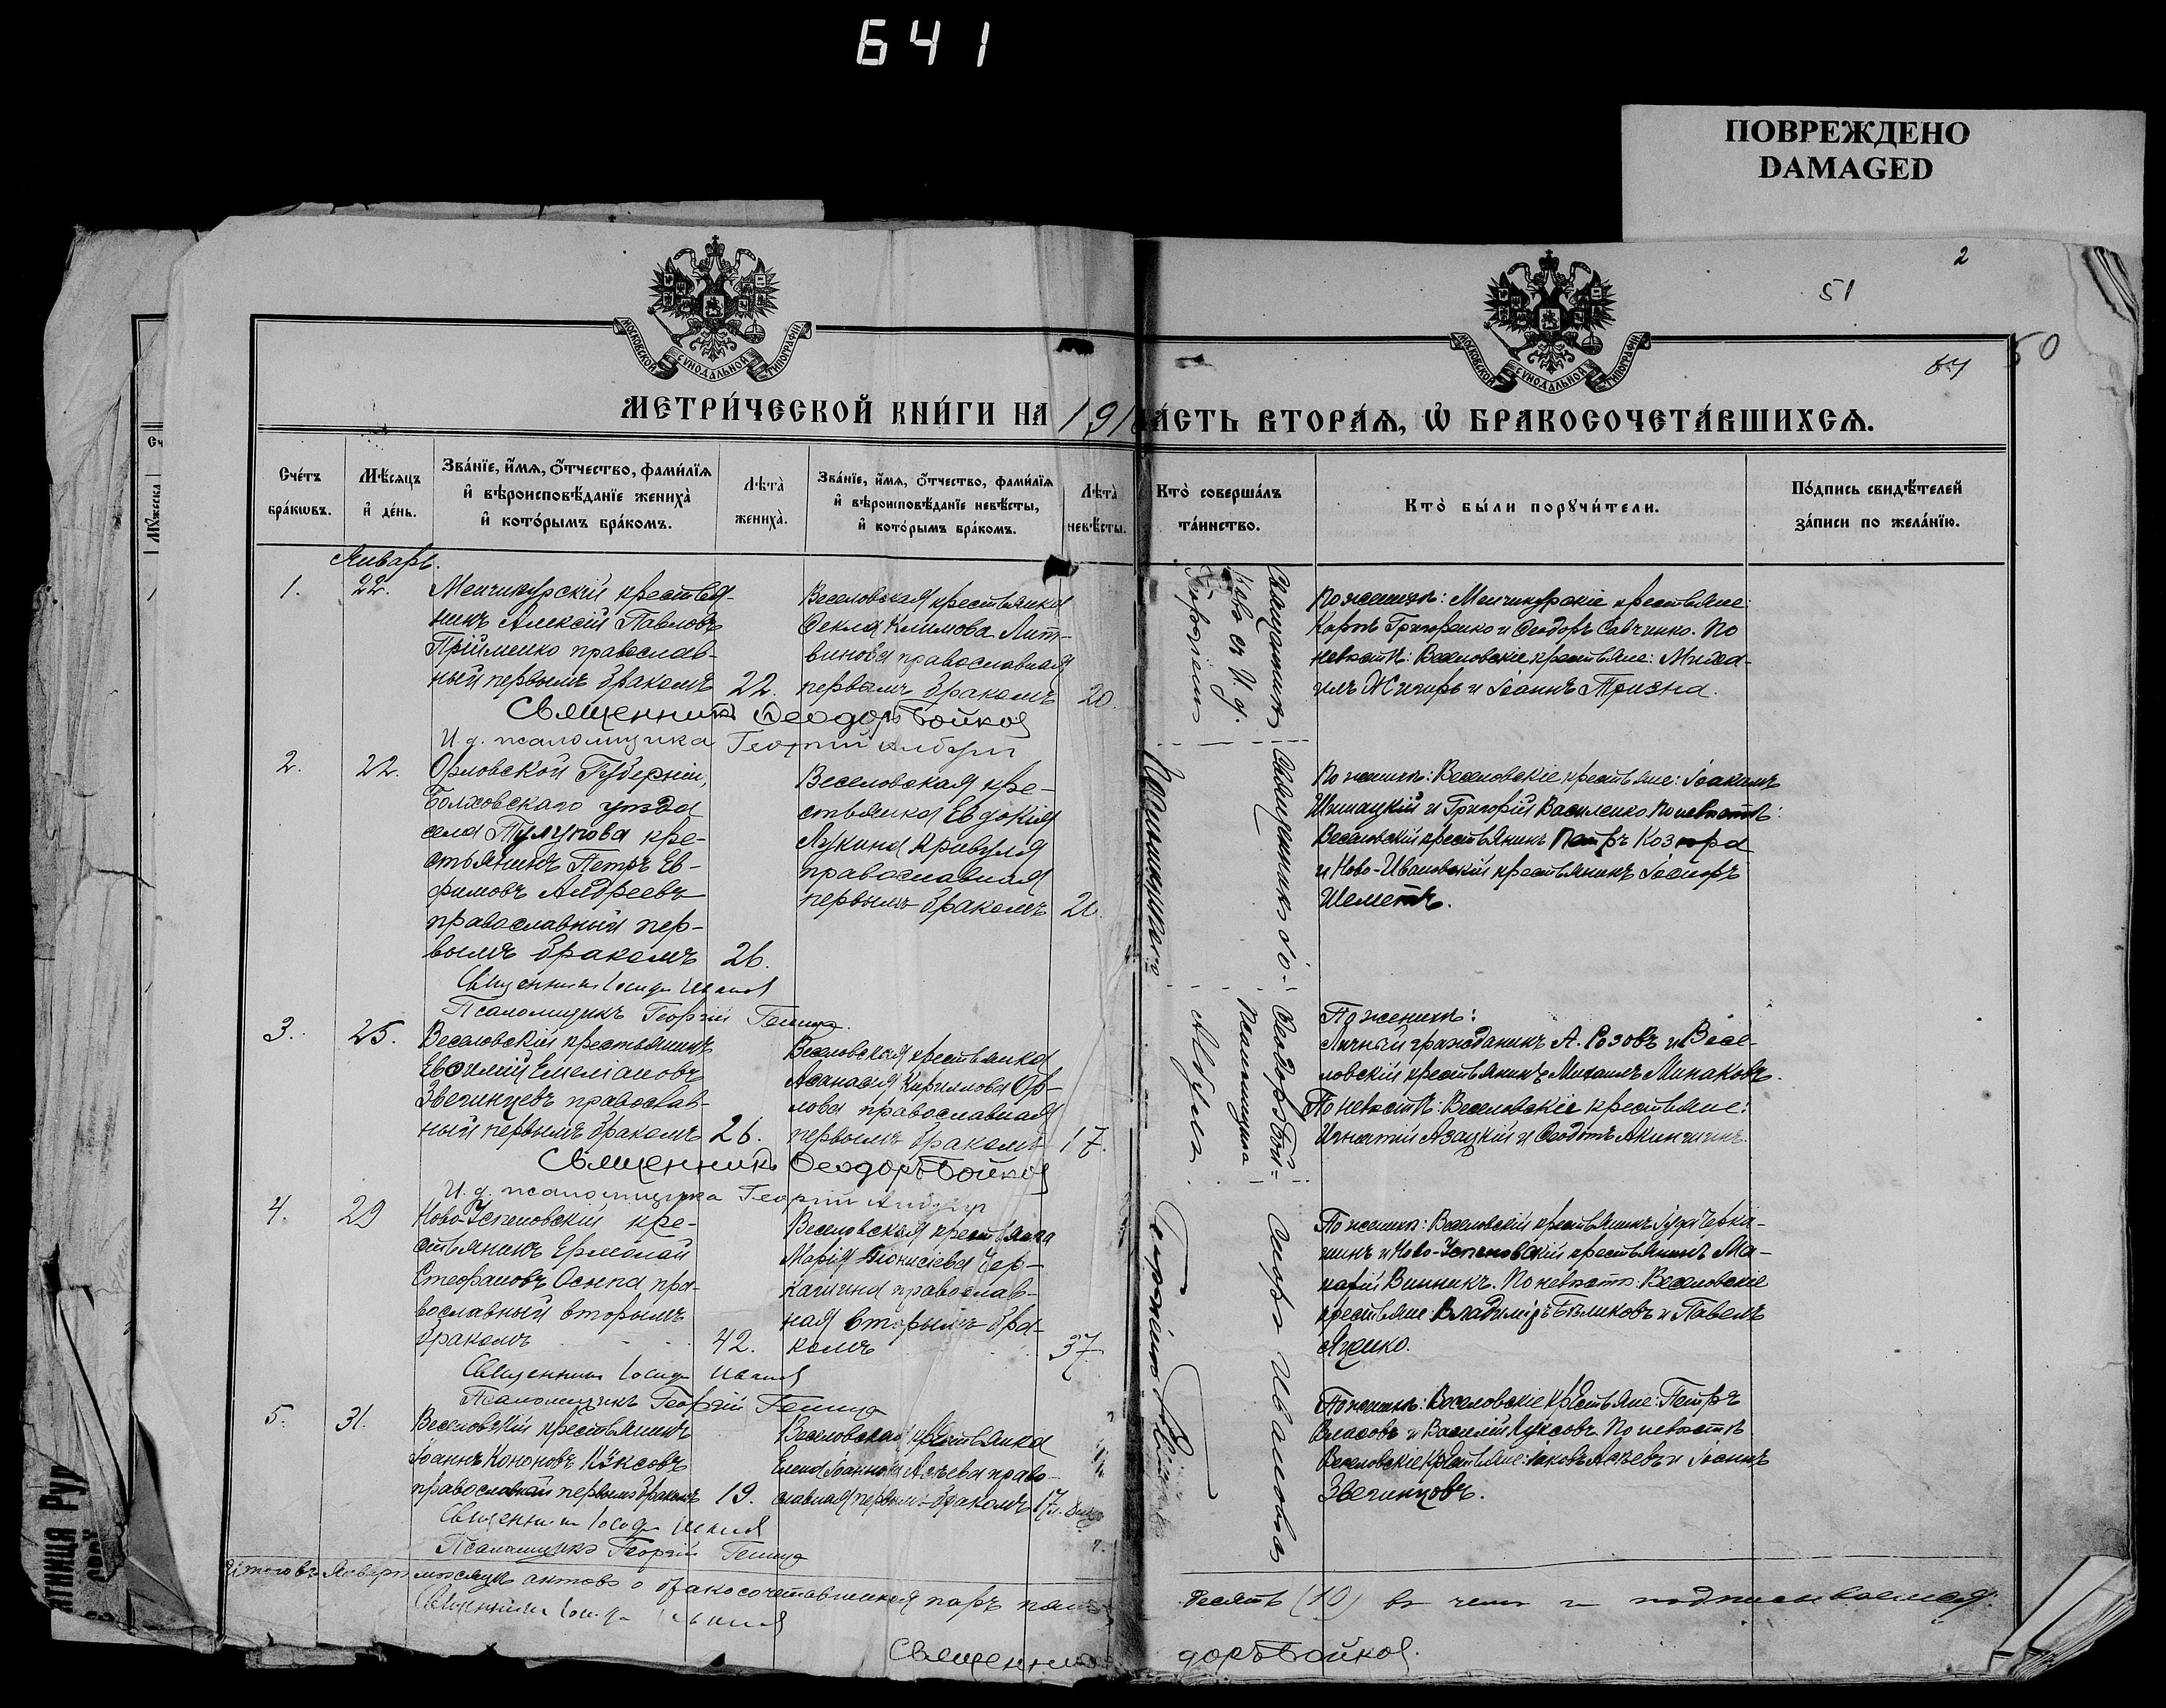 641
ПОВРЕЖДЕНО
DAMAGED
2
51
50
МОСКОВСКОЙ СѴНОДАЛЬНОЙ ТИПОГРАФІИ
МОСКОВСКОЙ СѴНОДАЛЬНОЙ ТИПОГРАФІИ
МЕТРИ́ЧЕСКОЙ КНИ́ГИ НА 191
ЧА́СТЬ ВТОРА́Ѧ, Ѽ БРАКОСОЧЕТА́ВШИХСѦ.
Сче́тъ бра́кѡвъ.
Мѣ́сѧцъ и҆ де́нь.
Зва́нїе, и҆́мѧ, ѻ҆́тчество, фами́лїѧ
и҆ вѣроисповѣ́данїе жениха̀
и҆ кото́рымъ бра́комъ.
Лѣта̀ жениха̀.
Зва́нїе, и҆́мѧ, ѻ҆́тчество, фами́лїѧ
и҆ вѣроисповѣ́данїе невѣ́сты,
и҆ кото́рымъ бра́комъ.
Лѣта̀ невѣ́сты.
Кто̀ соверша́лъ та́инство.
Кто̀ бы́ли порꙋчи́тели.
По́дпись свидѣ́телей за́писи по жела́нїю.
Январь.
1.
22.
Менчикурскій крестья-
нинъ Алексій Павловъ
Прійменко православ-
ный первымъ бракомъ
22.
Веселовская крестьянка
Ѳекла Климова Лит-
винова православная
первымъ бракомъ
20.
По женихѣ: Менчикурскіе крестьяне:
Карпъ Григоренко и Ѳеодоръ Савченко. По
невѣстѣ: Веселовскіе крестьяне: Миха-
илъ Жигирь и Іоаннъ Тризна.
Священникъ Ѳеодоръ Бойковъ
И. д. псаломщика Георгій
2.
22.
Орловской Губерніи,
Болховскаго уѣзда
села кре-
стьянинъ Петръ Ев-
фимовъ Андреевъ
православный пер-
вымъ бракомъ
26.
Веселовская кре-
стьянка Евдокія
Лукина Кривуля
православная
первымъ бракомъ
По женихѣ: Веселовскіе крестьяне: Іоакимъ
и Григорій Василенко. По невѣстѣ:
Веселовскій крестьянинъ Петръ
и Ново-Ивановскій крестьянинъ Іосифъ
Шеметъ.
Священникъ Іосифъ Ивановъ
Псаломщикъ Георгій
3.
25.
Веселовскій крестьянинъ
Евѳимій Емеліановъ
Звегинцевъ православ-
ный первымъ бракомъ
26.
Веселовская крестьянка
Аѳанасія Кириллова Ор-
лова православная
первымъ бракомъ
17.
По женихѣ:
Личный гражданинъ А. Розовъ и Весе-
ловскій крестьянинъ Михаилъ Минаковъ.
По невѣстѣ: Веселовскіе крестьяне:
Игнатій и Ѳеодотъ Акинчинъ.
Священникъ Ѳеодоръ Бойковъ
И. д. псаломщика Георгій
4.
29
Ново-Успеновскій кре-
стьянинъ Ермолай
Стефановъ Осипа пра-
вославный вторымъ
бракомъ
42.
Веселовская крестьянка
Марія Діонисіева Чер-
кашина православ-
ная вторымъ бра-
комъ
37.
По женихѣ: Веселовскій крестьянинъ Іуда Черка-
шинъ и Ново-Успеновскій крестьянинъ Ма-
карій Винникъ. По невѣстѣ: Веселовскіе
крестьяне: Владиміръ Бѣликовъ и Павелъ
Яценко.
Священникъ Іосифъ Ивановъ
Псаломщикъ Георгій
5.
31.
Веселовскій крестьянинъ
Іоаннъ Кононовъ Куксовъ
православный первымъ бракомъ
19.
Веселовская крестьянка
Елена Іоаннова право-
славная первымъ бракомъ
17
По женихѣ: Веселовскіе крестьяне: Петръ
Власовъ и Василій Куксовъ. По невѣстѣ
Веселовскіе крестьяне: Іаковъ и Іоаннъ
Звегинцовъ.
Священникъ Іосифъ Ивановъ
Псаломщикъ Георгій
Священникъ Ѳеодоръ Бой-
ковъ съ и. д.
псаломщика
Георгіемъ
Священникъ Іосифъ Ивановъ
Итого въ Январѣ мѣсяцѣ актовъ о бракосочетавшихся паръ пять
десять (10) въ чемъ и подписываемся:
Священникъ Іосифъ Ивановъ
Священникъ
доръ Бойковъ.